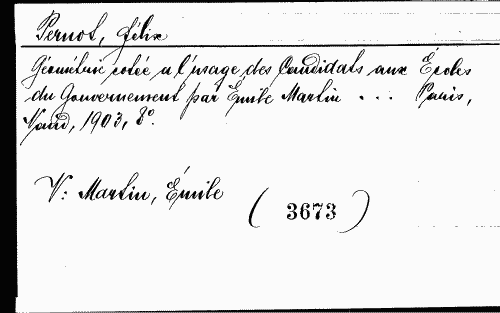 Pernot, Félix
Géométrie cotée a l'usage des Candidats aux Écoles
du Gouvernement par Émile Martin . . . Paris,
1903, 8°.
V: Martin, Émile
(3673)